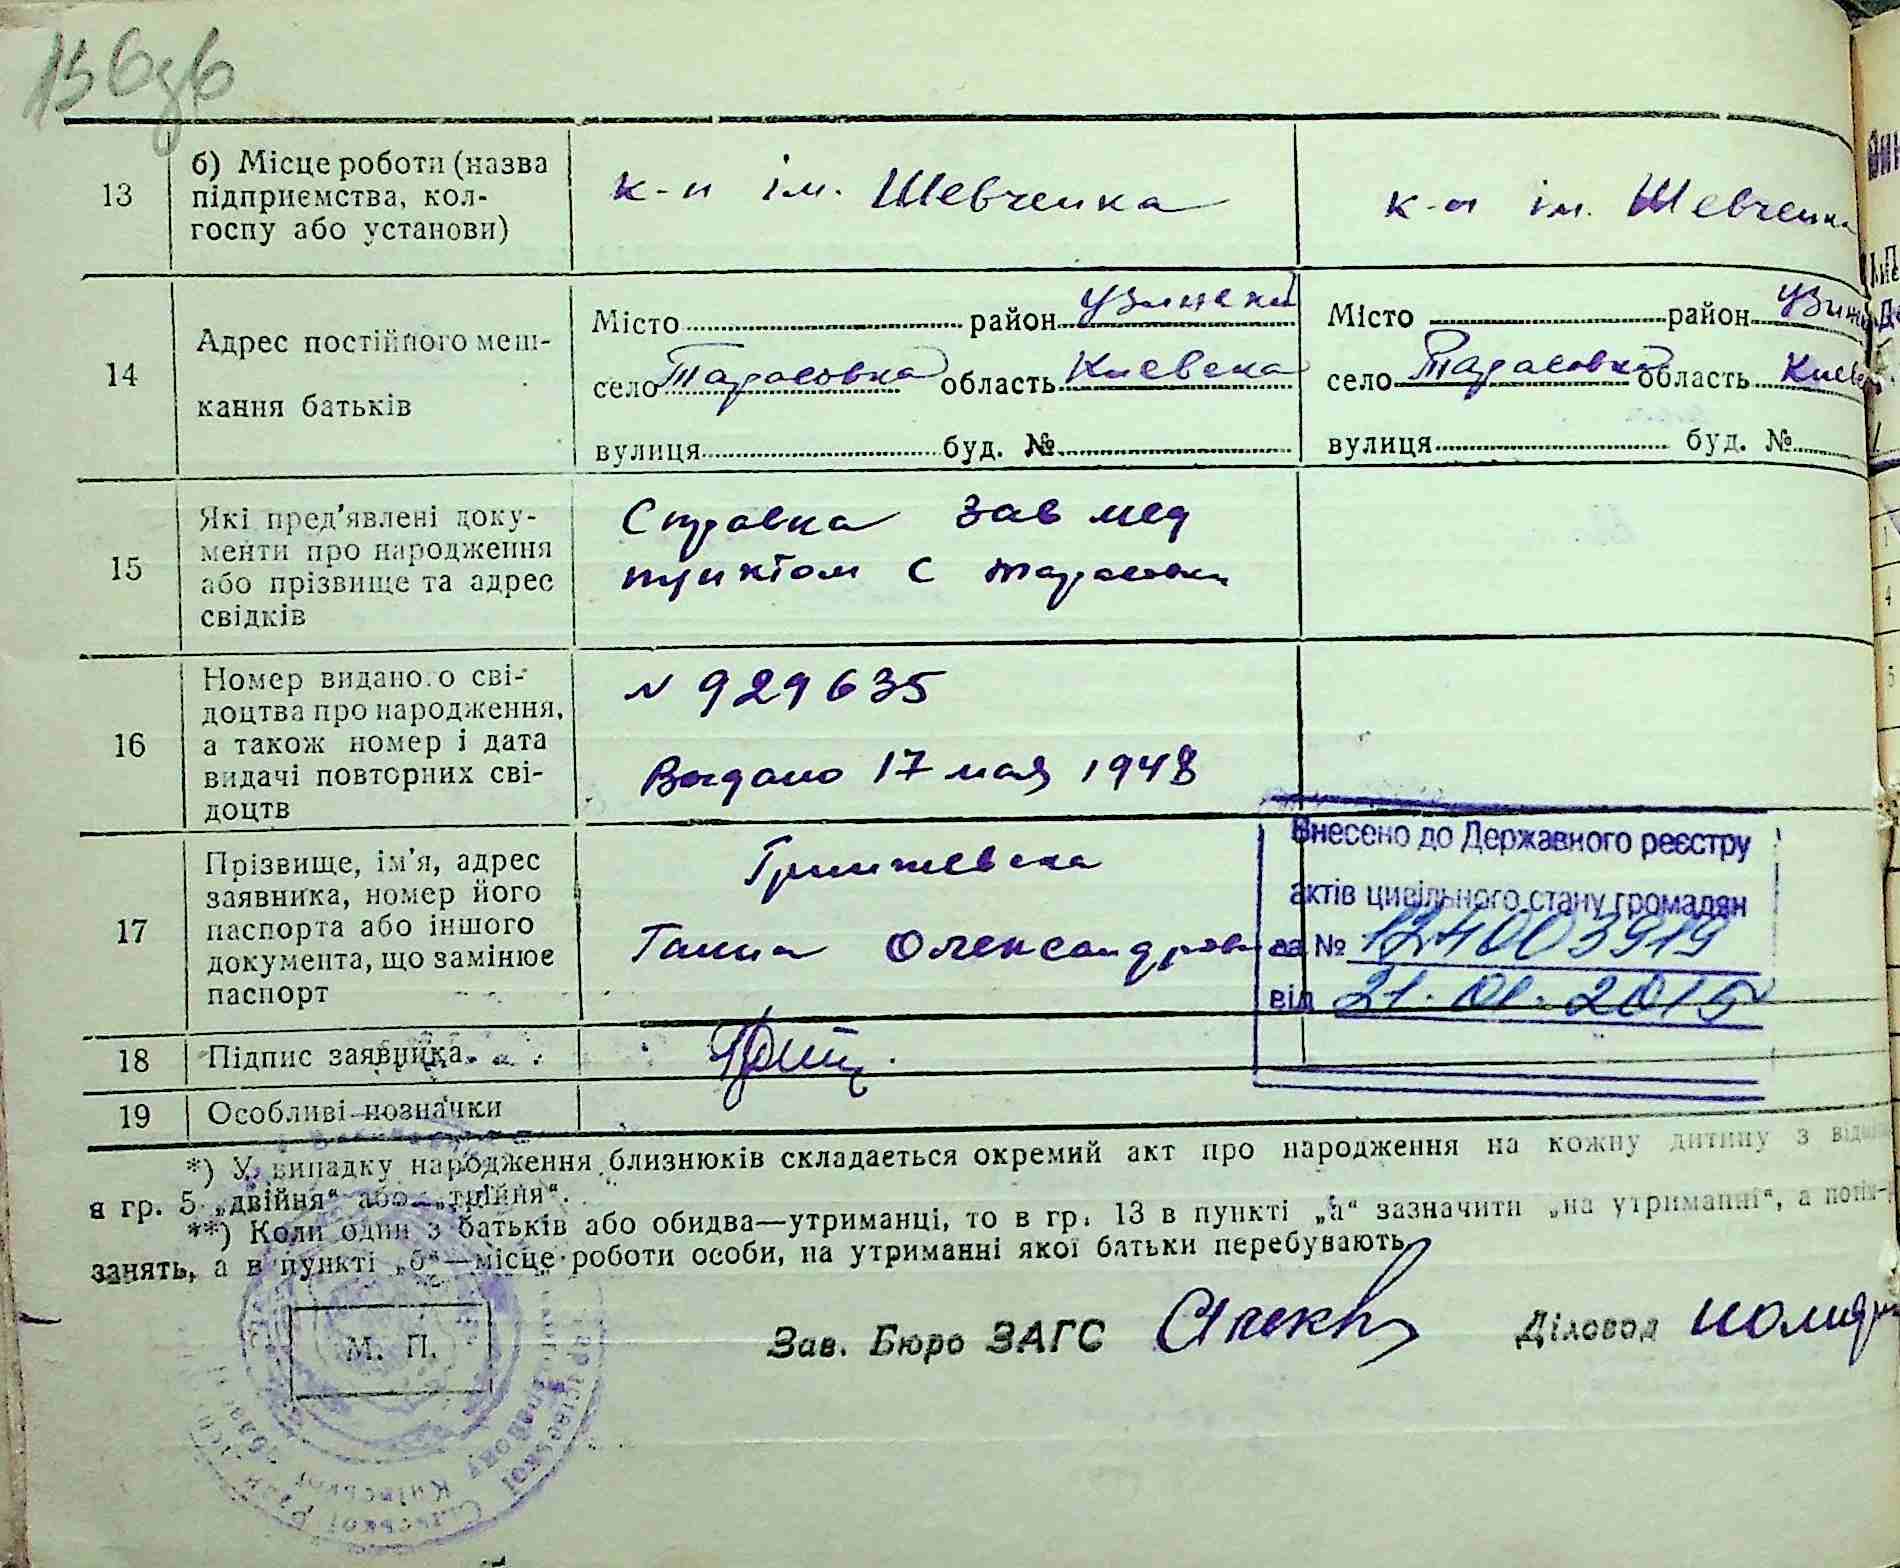 13
б) Місце роботи (назва
підприємства, кол-
госпу або установи)
к-п ім. Шевченка
к-п ім. Шевченка
14
Адрес постійного меш-
кання батьків
Місто район Узинский
село Тарасовка область Киевска
вулиця буд. №
Місто район
село Тарасовка область
вулиця буд. №
15
Які пред'явлені доку-
менти про народження
або прізвище та адрес
свідків
Справка зав мед
пунктом с Тарасовки
16
Номер виданого сві-
доцтва про народження,
а також номер і дата
видачі повторних сві-
доцтв
N 929635
Выдано 17 мая 1948
17
Прізвище, ім'я, адрес
заявника, номер його
паспорта або іншого
документа, що замінює
паспорт
Ганна
Внесено до Державного реєстру
актів цивільного стану громадян
за № 124003919
від 21.01.2015
18
Підпис заявника
19
Особливі позначки
*) У випадку народження близнюків складається окремий акт про народження на кожну дитину з
в гр. 5 „двійня“ або „трійня“.
**) Коли один з батьків або обидва—утриманці, то в гр. 13 в пункті „а“ зазначити „на утриманні“, а
занять, а в пункті „б“—місце роботи особи, на утриманні якої батьки перебувають
М. П.
Зав. Бюро ЗАГС
Діловод